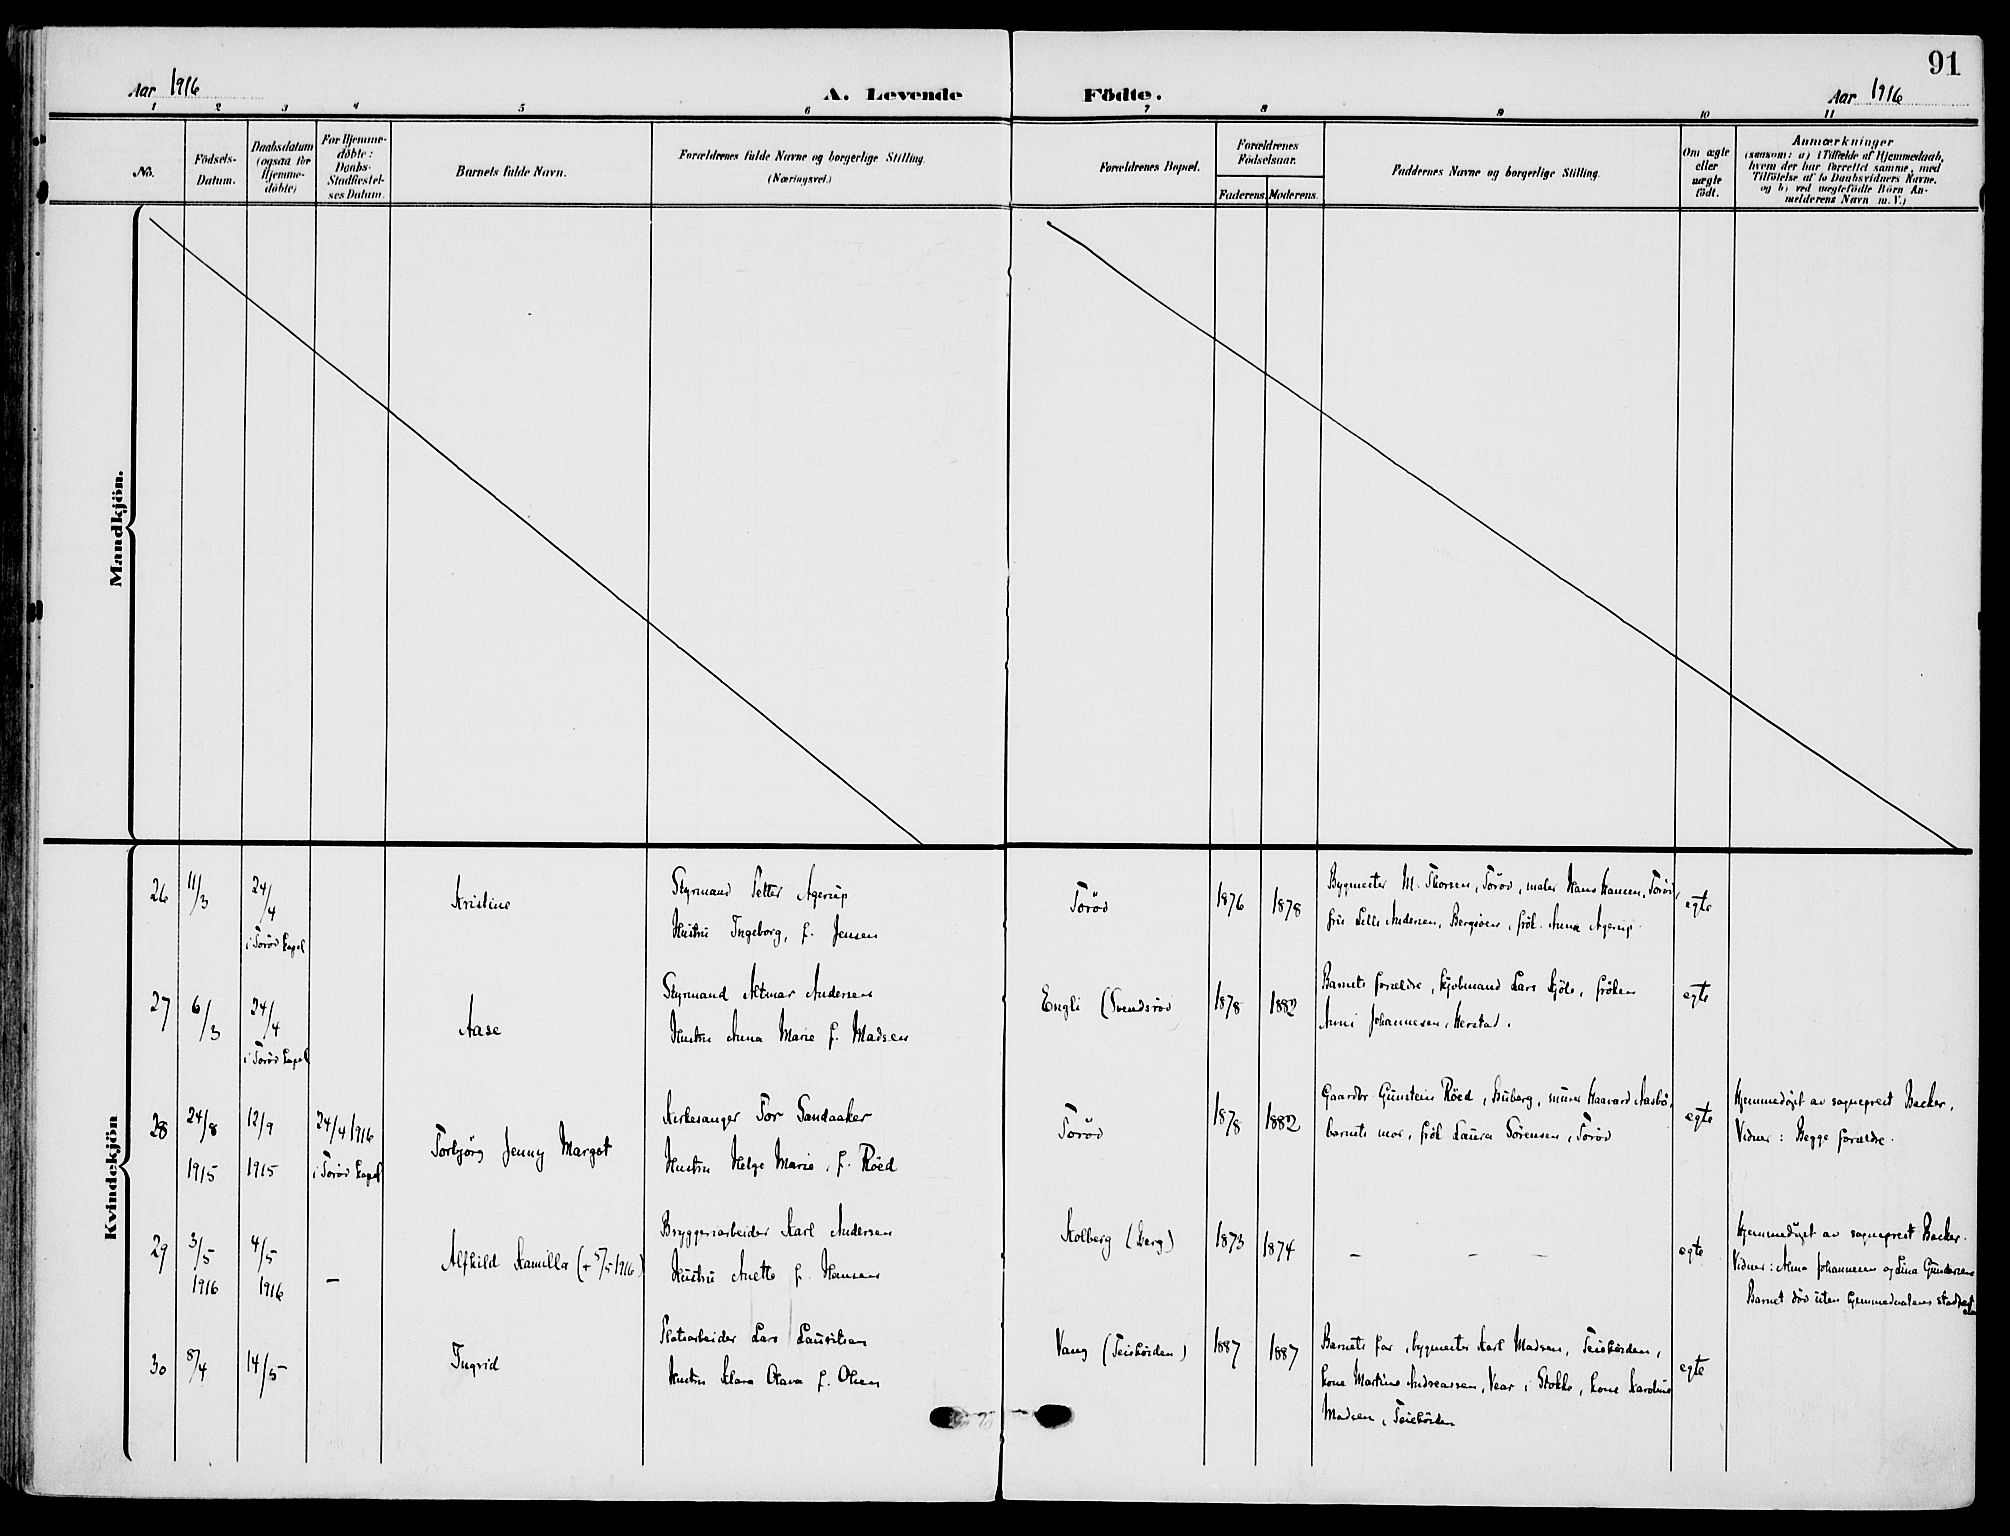 91
Aar 1916
A. Levende Födte.
Aar 1916
1 2 3 4 5 6 7 8 9 10 11
No.
Födsels-
Datum.
Daabsdatum
(ogsaa for
Hjemme-
döbte)
For Hjemme-
döbte:
Daabs-
Stadfæstel-
ses Datum.
Barnets fulde Navn.
Forældrenes fulde Navne og borgerlige Stilling.
(Næringsvei.)
Forældrenes Bopæl.
Forældrenes
Födselsaar.
Faderens. Moderens.
Faddernes Navne og borgerlige Stilling.
Om ægte
eller
uægte
födt.
Anmærkninger
(saasom: a) i Tilfælde af Hjemmedaab,
hvem der har forrettet samme, med
Tilföielse af to Daabsvidners Navne,
og b) ved uægtefödte Börn An-
melderens Navn m. V.)
Mandkjön.
Kvindekjön
26
11/3
24/4
i Toröd kapel
Kristine
Styrmand Petter Agerup
Hustru Ingeborg, f. Jensen
Toröd
1876
1878
Bygmester M. Thorsen, Toröd, maler Hans Hansen, Toröd,
fru Lilli Andersen, Bergsöen, frök. Anna Agerup.
egte
27
6/3
24/4
i Toröd kapel
Aase
Styrmand Altmar Andersen
Hustru Anna Marie f. Madsen
Engli (Svendsröd
1878
1882
Barnets forældre, Lars
Anni Johannesen, Herstad.
egte
28
24/8
1915
12/9
1915
24/4 1916
i Toröd kapel
Torbjörg Jenny Margot
Kirkesanger Tor Sandaaker
Hustru Helga Marie, f. Röed
Toröd
1878
1882
Gaardbr. Gunstein Röed, Buberg, murer Haavard Aasbö,
barnets mor, frök Laura Sörensen, Toröd
egte
Hjemmedöpt av sogneprest Backer.
Vidner: Begge forældre.
29
3/5
1916
4/5
1916
–
Alfhild Kamilla (+ 5/5 1916)
Bryggeriarbeider Karl Andersen
Hustru Anette f. Hansen
Kolberg (Berg)
1873
1874
– – –
egte
Hjemmedöpt av sogneprest Backer.
Vidner: Alma Johannesen og Lina Gundersen
Barnet död uten hjemmedaabens
30
8/4
14/5
Ingrid
Lars Lauritsen
Hustru Klara Olava f. Olsen
Vang (Teiehöiden)
1887
1887
Barnets far, bygmester Karl Madsen, Teiehöiden,
kone Martine Andreassen, Vear i Stokke, kone Karoline
Madsen, Teiehöiden
egte